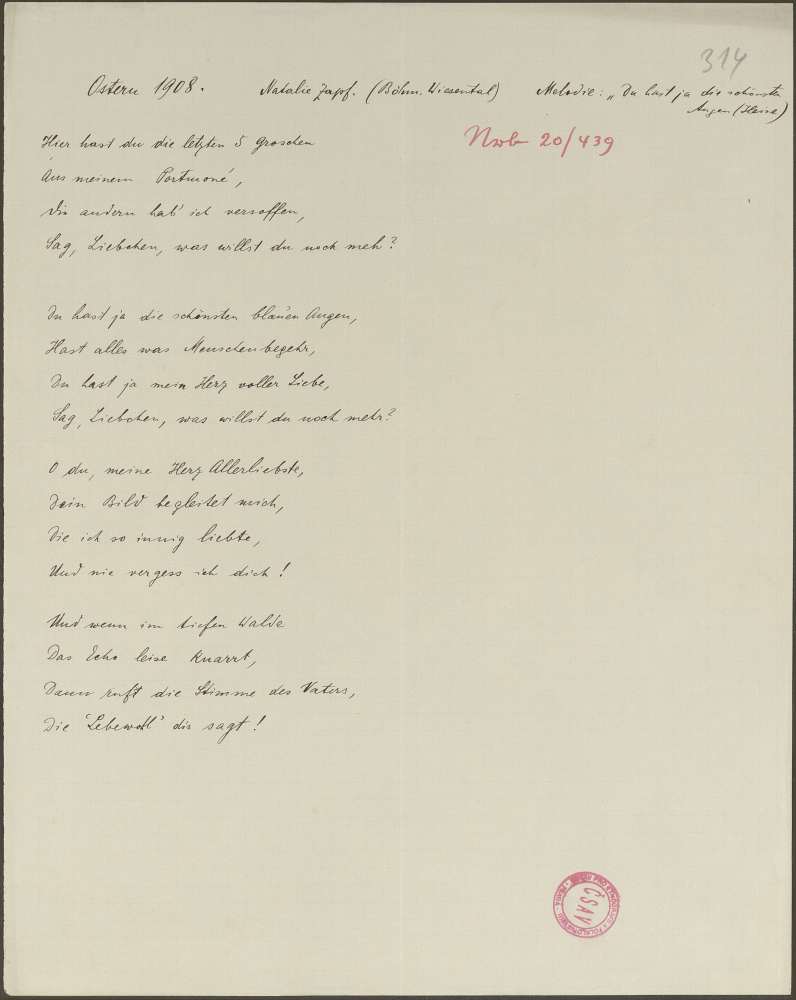 314
Ostern 1908. Natalie Zapf. (Böhm. Wiesental) Melodie: „Du hast ja die schönsten
Augen (Heine)
Nwb 20/439
Hier hast du die letzten 5 Groschen
Aus meinem Portmoné,
Die andern hab' ich versoffen,
Sag, Liebchen, was willst du noch meh?
Du hast ja die schönsten blauen Augen,
Hast alles was Menschenbegehr,
Du hast ja mein Herz voller Liebe,
Sag, Liebchen, was willst du noch mehr?
O du, meine Herz Allerliebste,
Dein Bild begleitet mich,
Die ich so innig liebte,
Und nie vergess ich dich!
Und wenn im tiefen Walde
Das Echo leise knarrt,
Dann ruft die Stimme des Vaters,
Die 'Lebewohl' dir sagt!
ČSAV